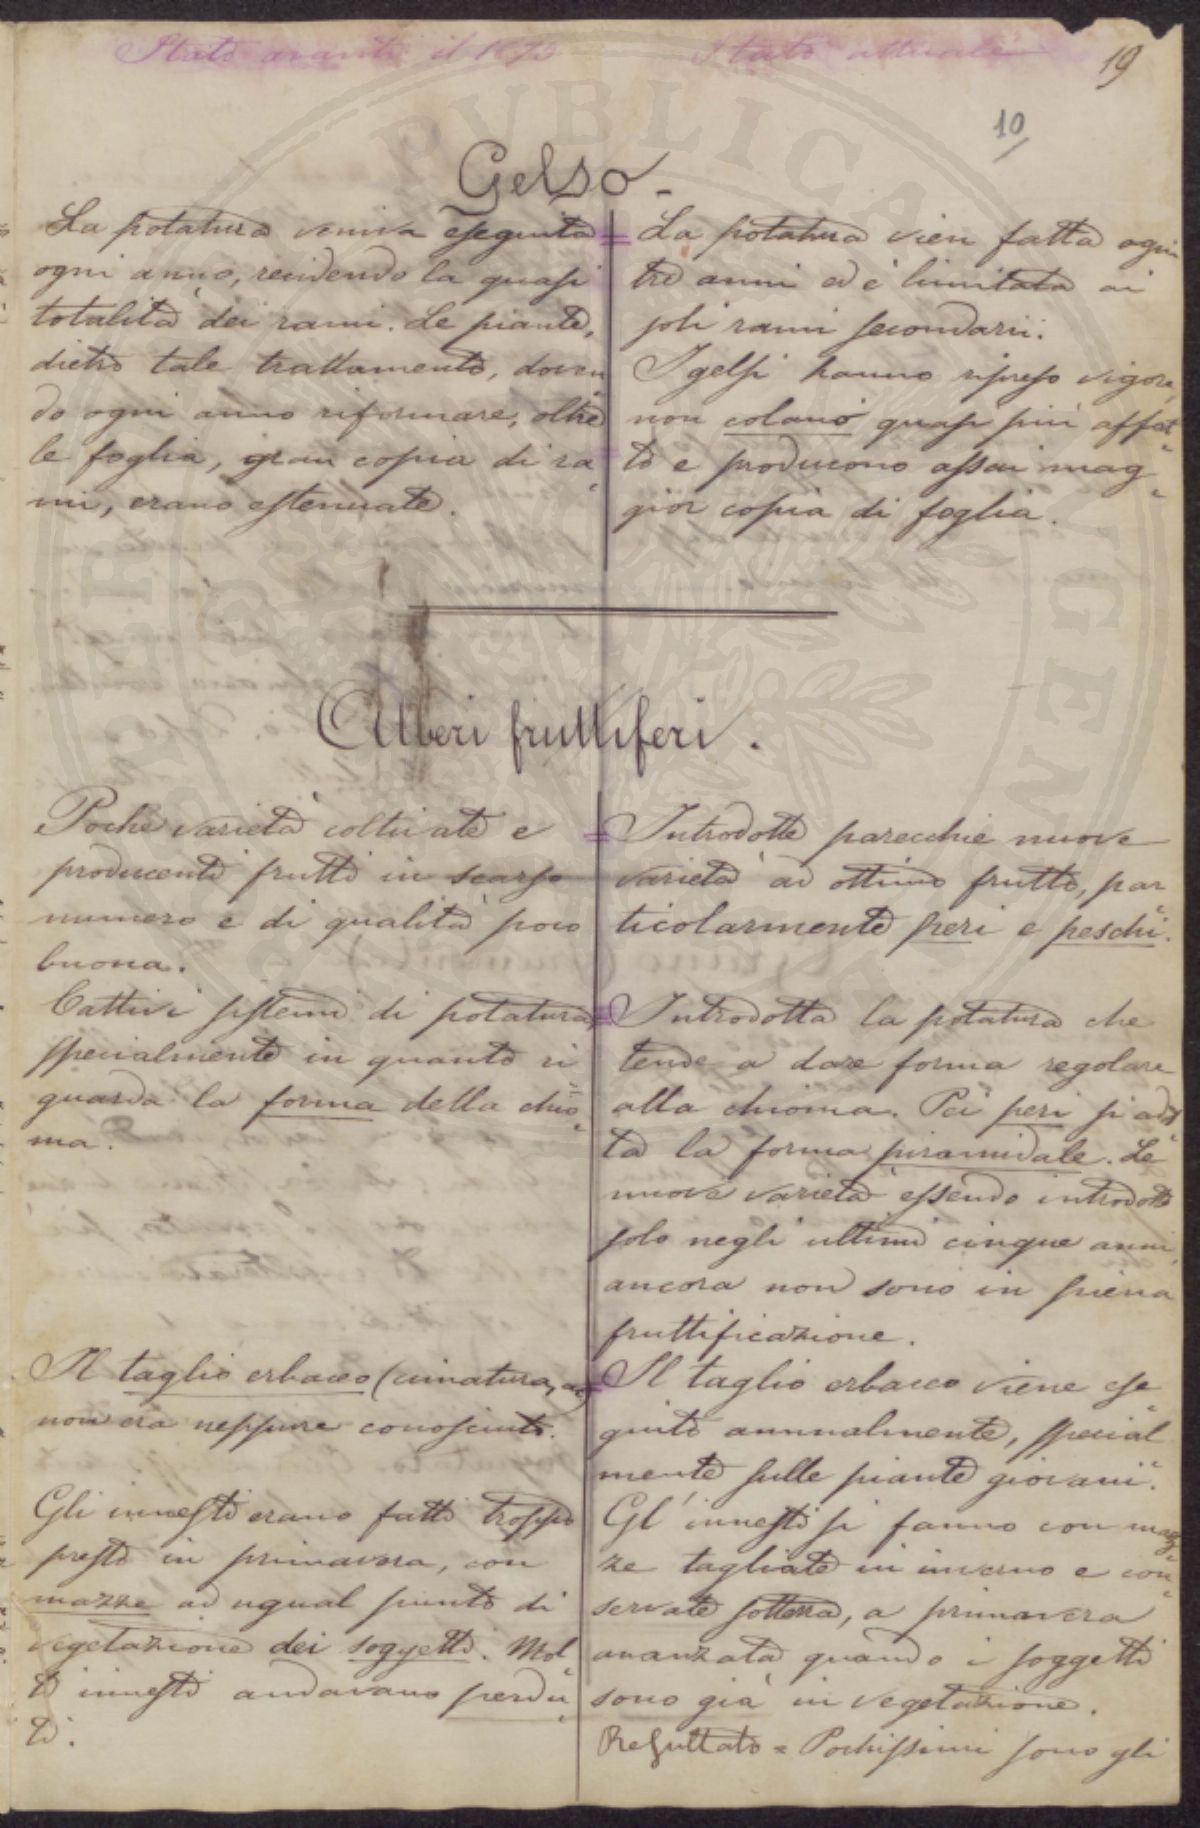 Stato avanti il 1873 Stato attuale
19
10
Gelso.
La potatura veniva eseguita
ogni anno, recidendo la quasi
totalità dei rami. Le piante,
dietro tale trattamento, doven
do ogni anno riformare, oltre
le foglia, gran copia di ra
mi, erano estenuate.
La potatura vien fatta ogni
tre anni ed è limitata ai
soli rami secondarii.
I gelsi hanno ripreso vigore,
non colano quasi più affat
to e producono assai mag
gior copia di foglia.
Alberi fruttiferi.
Poche varietà coltivate e
producenti frutti in scarso
numero e di qualità poco
buona.
Cattivi sistemi di potatura,
specialmente in quanto ri
guarda la forma della chio
ma.
Il taglio erbaceo (cimatura,
non era neppure conosciuto.
Gli innesti erano fatti troppo
presto in primavera, con
mazze ad ugual punto di
vegetazione dei soggetti. Mol
ti innesti andavano perdu
ti.
Introdotte parecchie nuove
varietà ad ottimo frutto, par
ticolarmente peri e peschi.
Introdotta la potatura che
tende a dare forma regolare
alla chioma. Pei peri si adot
ta la forma piramidale. Le
nuove varietà essendo introdotte
solo negli ultimi cinque anni
ancora non sono in piena
fruttificazione.
Il taglio erbaceo viene ese
guito annualmente, special
mente sulle piante giovani.
Gl'innesti si fanno con maz
ze tagliate in inverno e con
servate sotterra, a primavera
avanzata quando i soggetti
sono già in vegetazione.
Resultato = Pochissimi sono gli
PUBLICA